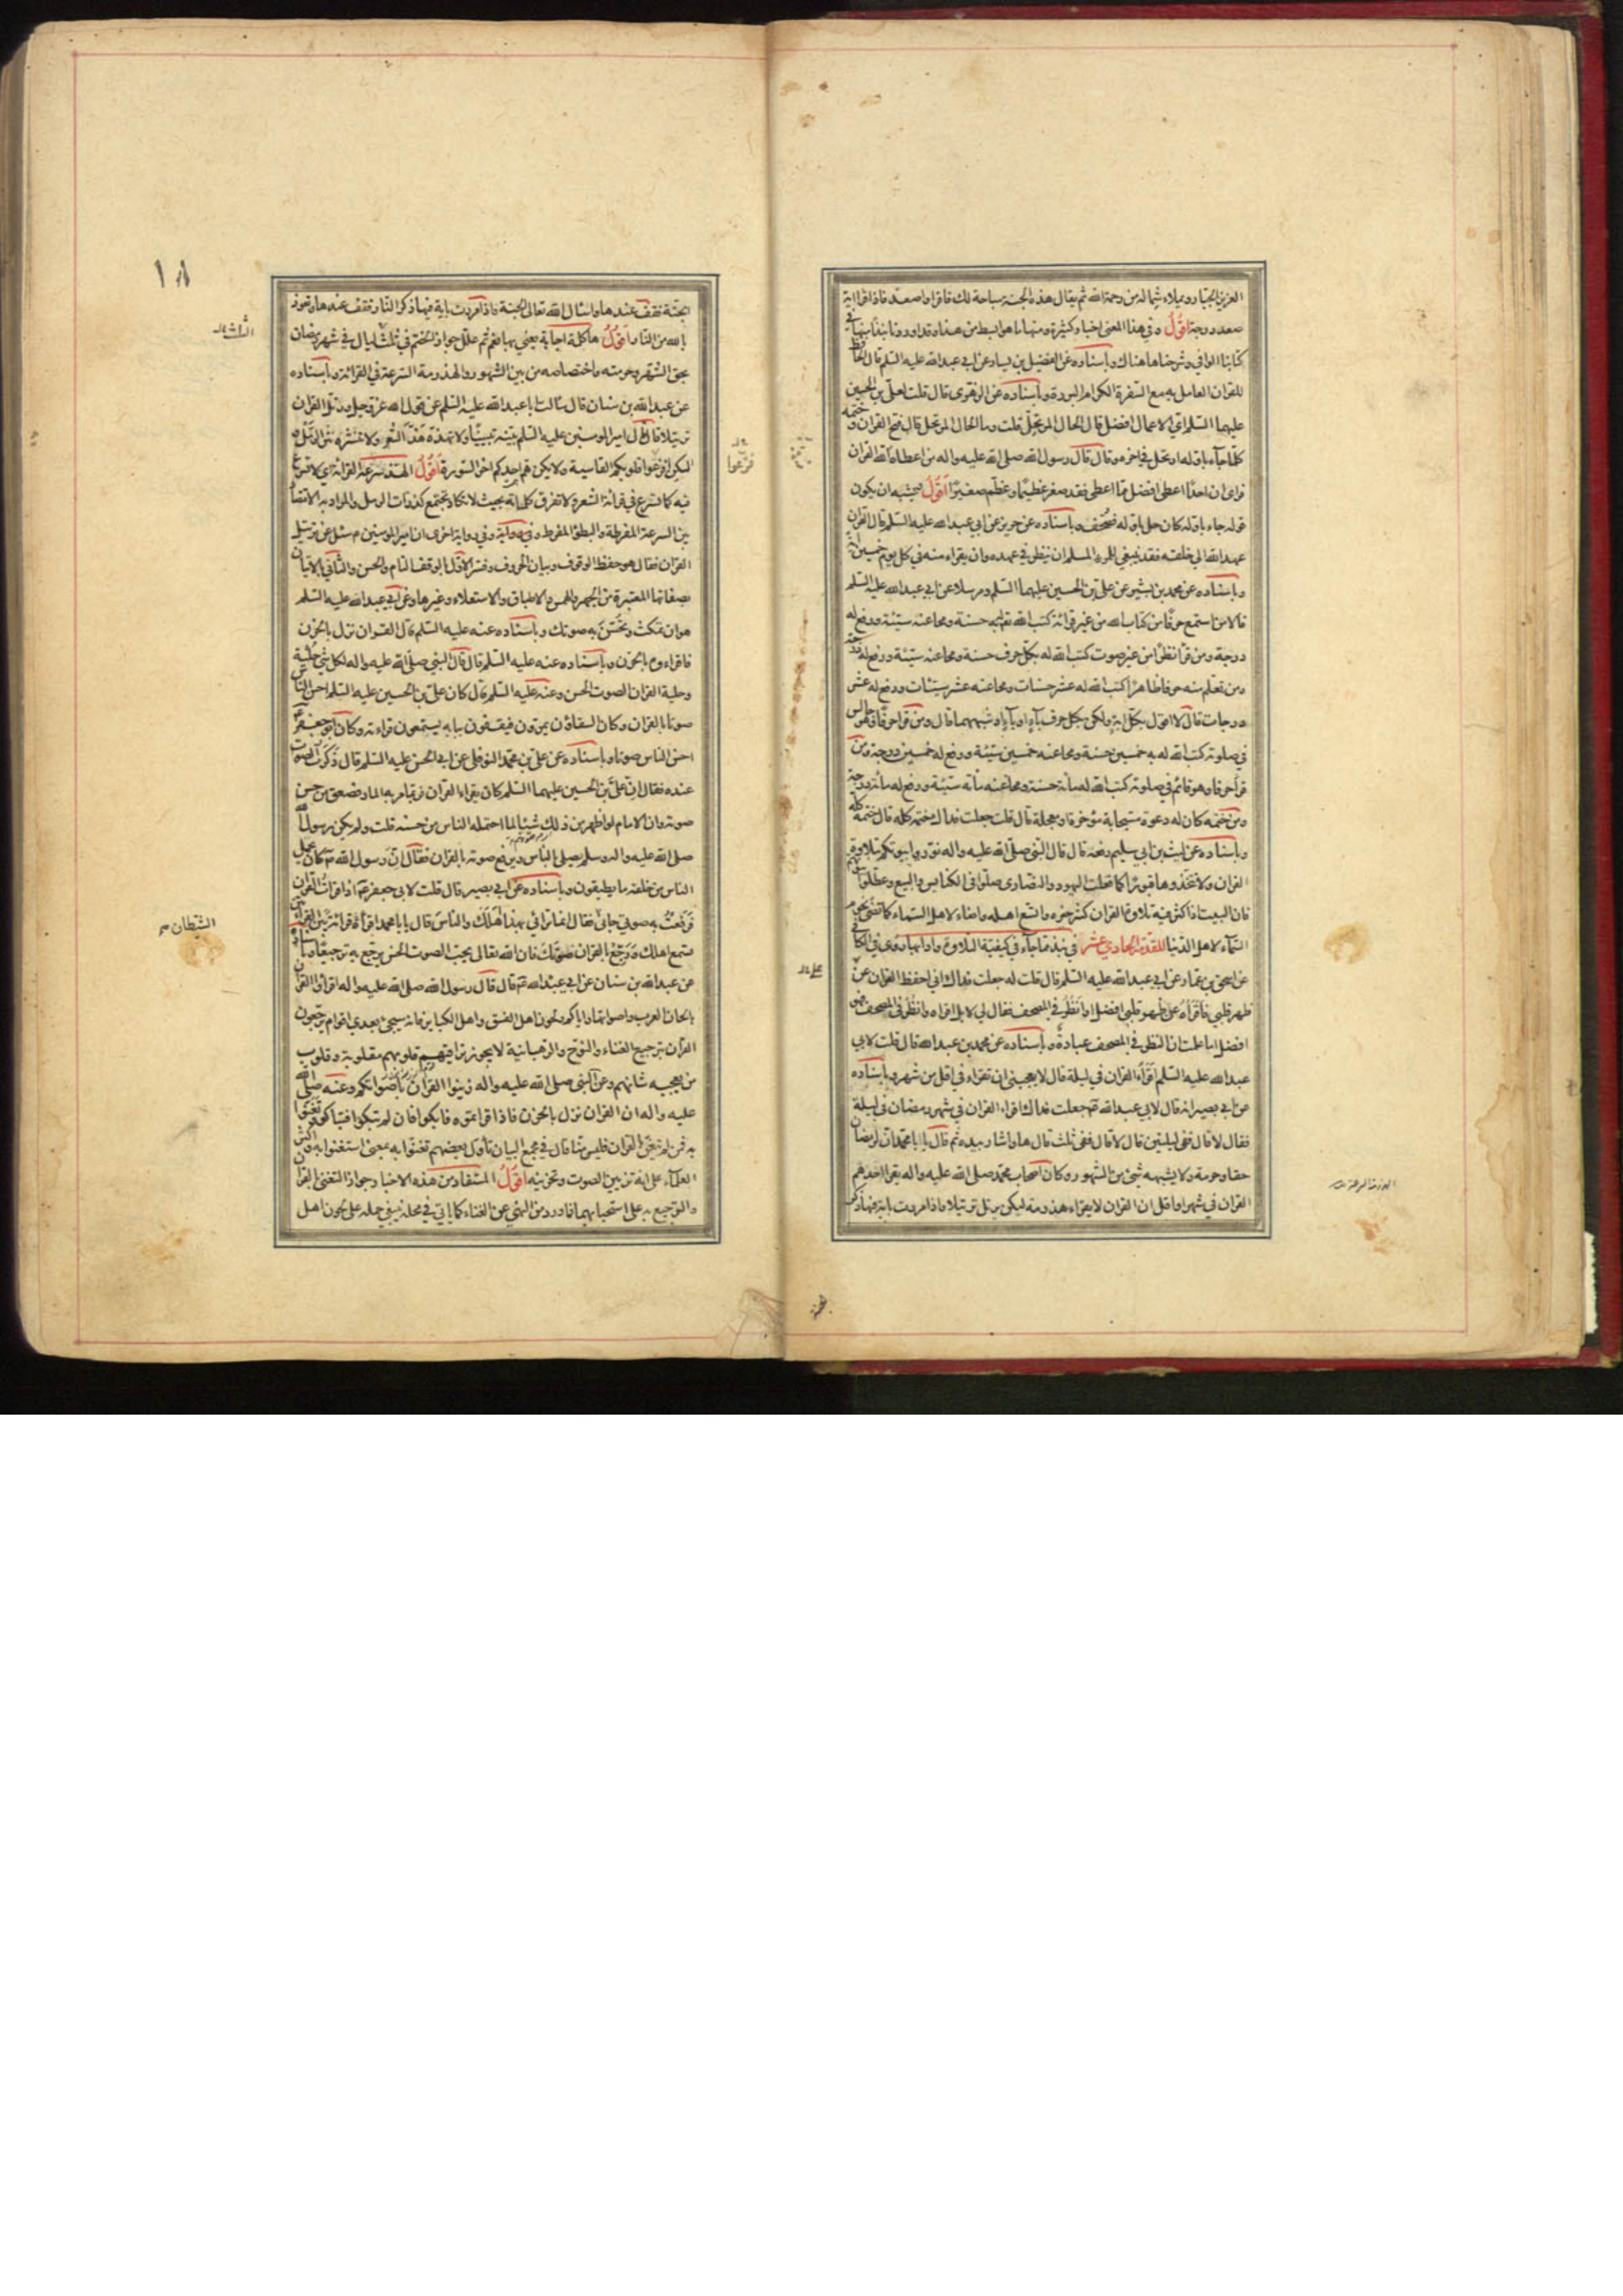 العزيز الجبار ويملاء شماله من رحمة الله ثم يقال هذه الجنة مباحة لك فاقرا واصعد فاذا قرا اية
صعد درجة اقول وفي هذا المعنى اخبار كثيرة ومنها ما هو ابسط من هذا وقد اوردنا نبذا منها في
كتابنا الوافي وشرحناها هناك وباسناده عن الفضيل بن يسار عن ابي عبدالله عليه السلم قال الحافظ
للقران العامل به مع السفرة الكرام البررة وباسناده عن الزهري قال قلت لعلي بن الحسين
عليهما السلم اي الاعمال افضل قال الحال المرتحل قلت وما الحال المرتحل قال فتح القران وختمه
كلما جاء باوله ارتحل في اخره وقال قال رسول الله صلى الله عليه واله من اعطاه الله القران
فراى ان احدا اعطي افضل مما اعطي فقد صغر عظيما وعظم صغيرا اقول ويشبه ان يكون
قوله جاء باوله كان حل باوله فصحف وباسناده عن حريز عن ابي عبدالله عليه السلم قال القران
عهد الله الى خلقه فقد ينبغي للمرء المسلم ان ينظر في عهده وان يقراء منه في كل يوم خمسين اية
وباسناده عن محمد بن بشير عن علي بن الحسين عليهما السلم ومرسلا عن ابي عبدالله عليه السلم
قالا من استمع حرفا من كتاب الله من غير قرائة كتب الله تعالى به حسنة ومحا عنه سيئة ورفع له
درجة ومن قرا نظرا من غير صوت كتب الله له بكل حرف حسنة ومحا عنه سيئة ورفع له درجة
ومن تعلم منه حرفا ظاهرا كتب الله له عشر حسنات ومحا عنه عشر سيئات ورفع له عشر
درجات قال لا اقول بكل اية ولكن بكل حرف باء او ياء او شبههما قال ومن قرا حرفا وهو جالس
في صلوته كتب الله له به خمسين حسنة ومحا عنه خمسين سيئة ورفع له خمسين درجة ومن
قرا حرفا وهو قائم في صلوته كتب الله له مائة حسنة ومحا عنه مائة سيئة ورفع له مائة درجة
ومن ختمه كان له دعوة مستجابة مؤخرة او معجلة قال قلت جعلت فداك ختمه كله قال ختمه كله
وباسناده عن ليث بن ابي سليم رفعه قال قال النبي صلى الله عليه واله نوروا بيوتكم بتلاوة
القران ولا تتخذوها قبورا كما فعلت اليهود والنصارى صلوا في الكنايس والبيع وعطلوا بيوتهم
فان البيت اذا كثر فيه تلاوة القران كثر خيره واتسع اهله واضاء لاهل السماء كما تضئ نجوم
السماء لاهل الدنيا المقدمة الحادي عشر في نبذ مما جاء في كيفية التلاوة وادابها روى في الكافي
عن اسحق بن عمار عن ابي عبدالله عليه السلم قال قلت له جعلت فداك اني احفظ القران عن
ظهر قلبي فاقرأه على ظهر قلبي افضل او انظر في المصحف فقال لي لا بل اقراه وانظر في المصحف فهو
افضل اما علمت ان النظر في المصحف عبادة وباسناده عن محمد بن عبدالله قال قلت لابي
عبدالله عليه السلم اقراء القران في ليلة قال لا يعجبني ان تقراء في اقل من شهر وباسناده
عن ابي بصير انه قال لابي عبدالله ع جعلت فداك اقراء القران في شهر رمضان في ليلة
فقال لا قال ففي ليلتين قال لا قال ففي ثلث قال ها واشار بيده ثم قال يا با محمد ان لرمضان
حقا وحرمة ولا يشبهه شئ من الشهور وكان اصحاب محمد صلى الله عليه واله يقرا احدهم
القران في شهر او اقل ان القران لا يقراء هذرمة ولكن يرتل ترتيلا واذا مررت باية فيها ذكر
الجنة
١٨
الجنة فقف عندها واسئال الله تعالى الجنة واذا مررت باية فيها ذكر النار فقف عندها وتعوذ
بالله من النار اقول ها كلمة اجابة يعني بها نعم ثم علل جواز الختم في ثلث ليال في شهر رمضان
بحق الشهر وحرمته واختصاصه من بين الشهور والهذرمة السرعة في القرائة وباسناده
عن عبدالله بن سنان قال سالت ابا عبدالله عليه السلم عن قول الله عز وجل ورتل القران
ترتيلا قال قال امير المومنين عليه السلم بينه تبيينا ولا تهذه هذ الشعر ولا تنثره نثر الرمل و
لكن افزعوا قلوبكم القاسية ولا يكن هم احدكم اخر السورة اقول الهذ سرعة القرائة اي لا تسرع
فيه كما تسرع في قرائة الشعر ولا تفرق كلماته بحيث لا تكاد تجتمع كذرات الرمل والمراد به الاقتصاد
بين السرعة المفرطة والبطؤ المفرط وفي رواية اخرى ان امير المومنين ع سئل عن ترتيل
القران فقال هو حفظ الوقوف وبيان الحروف وفسر الاول بالوقف التام والحسن والثاني بالاتيان
بصفاتها المعتبرة من الجهر والهمس والاطباق والاستعلاء وغيرها وعن ابي عبدالله عليه السلم
هو ان تمكث وتحسن به صوتك وباسناده عنه عليه السلم قال القران نزل بالحزن
فاقراءوه بالحزن وباسناده عنه عليه السلم قال قال النبي صلى الله عليه واله لكل شئ حلية
وحلية القران الصوت الحسن وعنه عليه السلم قال كان علي بن الحسين عليه السلم احسن الناس
صوتا بالقران وكان السقاؤن يمرون فيقفون ببابه يستمعون قراءته وكان ابو جعفر ع
احسن الناس صوتا وباسناده عن علي بن محمد النوفلي عن ابي الحسن عليه السلم قال ذكرت الصوت
عنده فقال ان علي بن الحسين عليهما السلم كان يقراء القران فربما مر به المار فصعق من حسن
صوته وان الامام لو اظهر من ذلك شيئا لما احتمله الناس من حسنه قلت ولم يكن رسول الله
صلى الله عليه واله وسلم يصلي بالناس ويرفع صوته بالقران فقال ان رسول الله ص كان يحمل
الناس من خلفه ما يطيقون وباسناده عن ابي بصير قال قلت لابي جعفر ع اذا قرات القران
فرفعت به صوتي جاءني فقال انما ترائي بهذا اهلك والناس قال يا با محمد اقرا قرائة بين القرائتين
تسمع اهلك ورجع بالقران صوتك فان الله تعالى يحب الصوت الحسن يرجع به ترجيعا وباسناده
عن عبدالله بن سنان عن ابي عبدالله ع قال قال رسول الله صلى الله عليه واله اقراوا القران
بالحان العرب واصواتها واياكم ولحون اهل الفسق واهل الكباير فانه سيجئ بعدي اقوام يرجعون
القران ترجيع الغناء والنوح والرهبانية لا يجوز تراقيهم قلوبهم مقلوبة وقلوب
من يعجبه شانهم وعن النبي صلى الله عليه واله زينوا القران باصواتكم وعنه صلى الله
عليه واله ان القران نزل بالحزن فاذا قراتموه فابكوا فان لم تبكوا فتباكوا وتغنوا
به فمن لم يتغن بالقران فليس منا قال في مجمع البيان تأول بعضهم تغنوا به بمعنى استغنوا به واكثر
العلماء على انه تزيين الصوت وتحزينه اقول المستفاد من هذه الاخبار جواز التغني بالقران
والترجيع به بل استحبابهما فما ورد من النهي عن الغناء كما ياتي في محله ينبغي حمله على لحون اهل
فزعوا
الشيطان